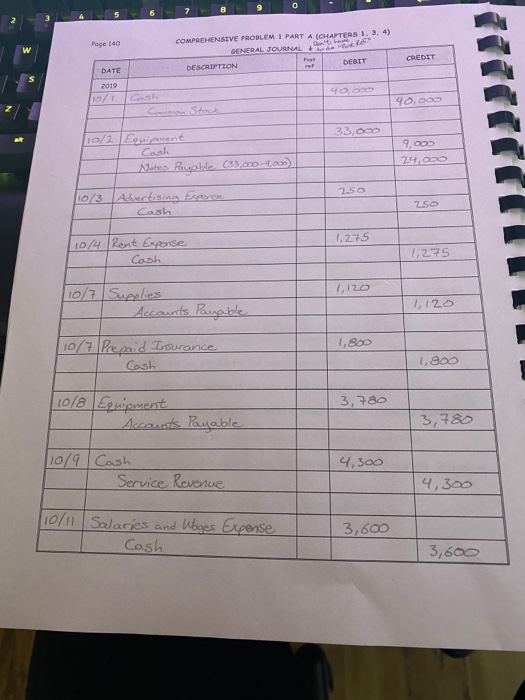 2 3 4 5 6 7 8 9 0
W
S
Z
alt
Page 140
COMPREHENSIVE PROBLEM 1 PART A (CHAPTERS 1, 3, 4)
GENERAL JOURNAL Don't have to do "Post Ref"
DATE DESCRIPTION Post ref DEBIT CREDIT
2019
10/1 Cash 40,000
Common Stock 40,000
10/2 Equipment 33,000
Cash 9,000
Notes Payable (33,000-9,000) 24,000
10/3 Advertising Expense 250
Cash 250
10/4 Rent Expense 1,275
Cash 1,275
10/7 Supplies 1,120
Accounts Payable 1,120
10/7 Prepaid Insurance 1,800
Cash 1,800
10/8 Equipment 3,780
Accounts Payable 3,780
10/9 Cash 4,300
Service Revenue 4,300
10/11 Salaries and Wages Expense 3,600
Cash 3,600